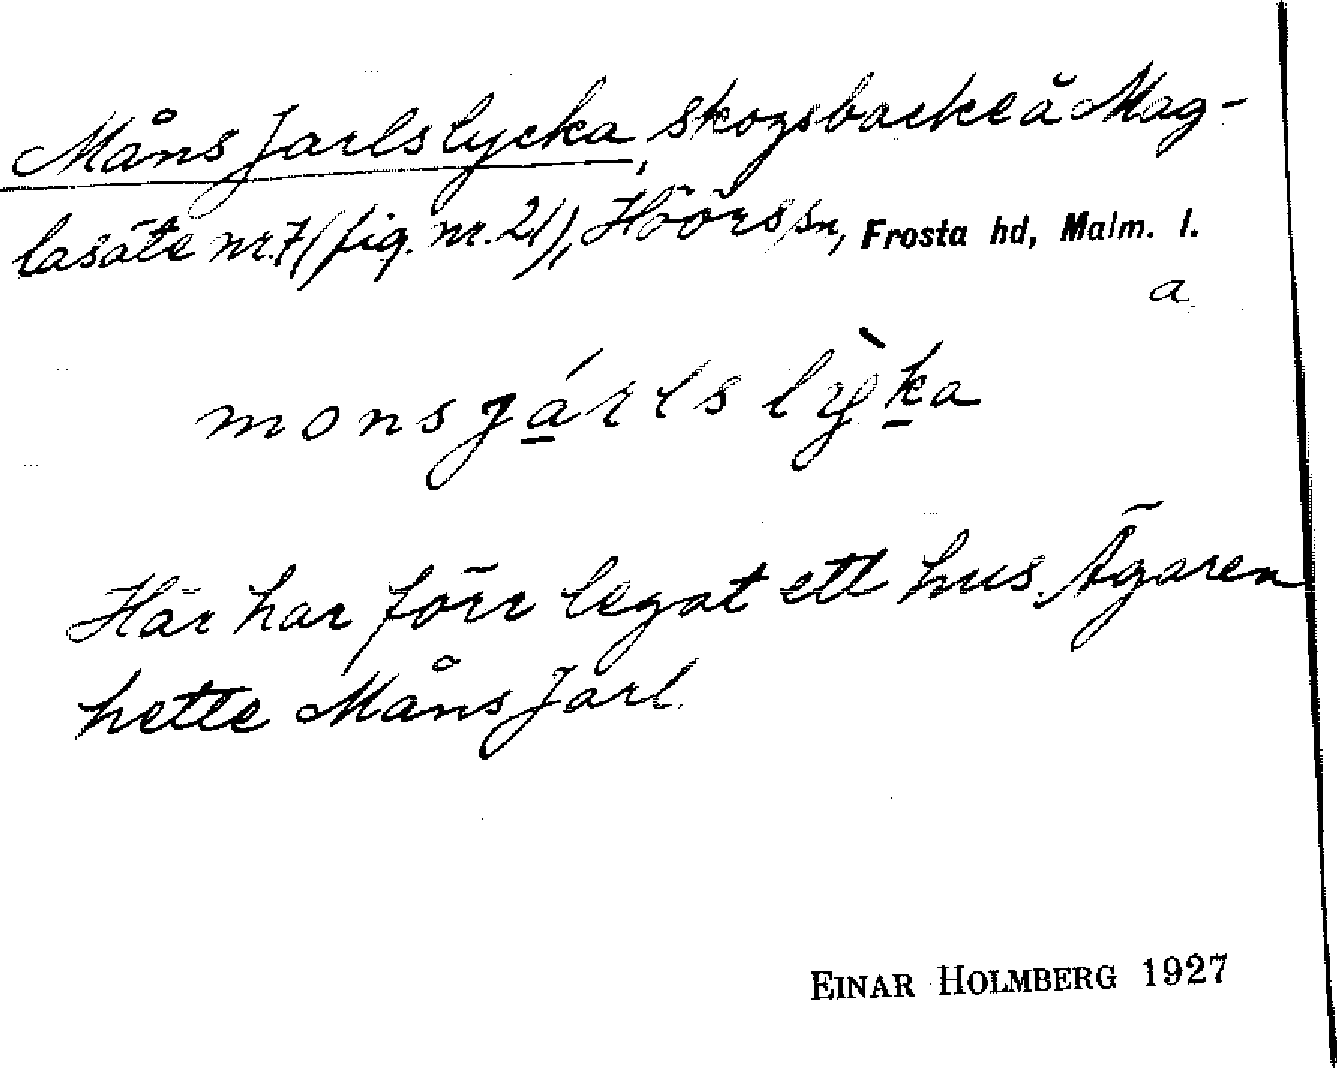 Måns Jarlslycka, skogsbacke å Mag-
lasäte nr. 7 (fig. nr. 21), Höörs sn, Frosta hd, Malm. l.
a
monsjárls lỳka
Här har förr legat ett hus. Ägaren
hette Måns Jarl.
EINAR HOLMBERG 1927